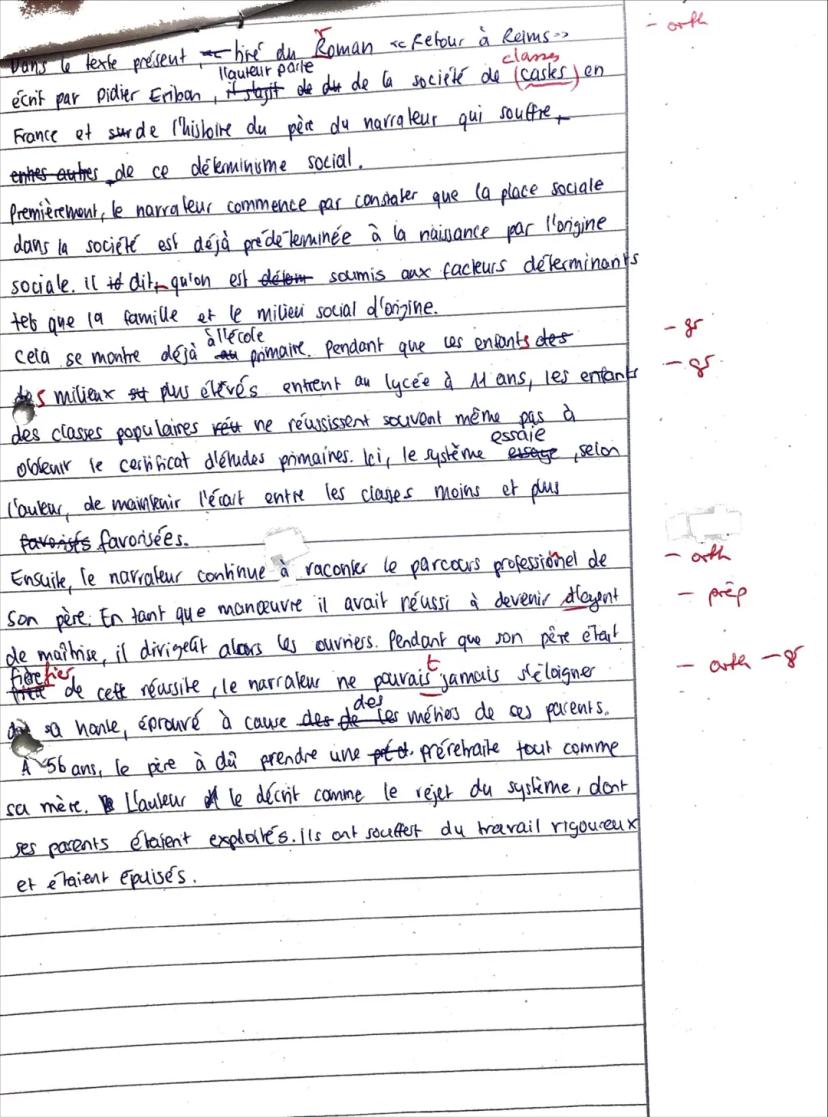 Dans le texte présent, tiré du Roman << Retour à Reims >> - orth
r
l'auteur parle classes
écrit par Didier Eribon, il s'agit de du de la société de (castes) en
France et sur de l'histoire du père du narrateur qui souffre,
entres autres de ce déterminisme social.
Premièrement, le narrateur commence par constater que la place sociale
dans la société est déjà prédeterminée à la naissance par l'origine
sociale. Il dit, qu'on est déter soumis aux facteurs déterminants
tels que la famille et le milieu social d'origine.
à l'école - gr
Cela se montre déjà au primaire. Pendant que les enfants des
des milieux plus élévés entrent au lycée à 11 ans, les enfants - gr
des classes populaires réu ne réussissent souvent même pas à
essaie
obtenir le certificat d'études primaires. Ici, le système essaye, selon
l'auteur, de maintenir l'écart entre les classes moins et plus
favorisés favorisées.
Ensuite, le narrateur continue à raconter le parcours professionel de - orth
son père. En tant que manœuvre il avait réussi à devenir d'agent - prép
de maîtrise, il dirigeait alors les ouvriers. Pendant que son père était
fière fier de cett réussite, le narrateur ne pouvais t jamais s'éloigner - orth - gr
des
sa honte, éprouvé à cause des de les métiers de ses parents.
À 56 ans, le père à dû prendre une prérétraite tout comme
sa mère. L'auteur le décrit comme le rejet du système, dont
ses parents étaient exploités. Ils ont souffest du travail rigoureux
et étaient épuisés.